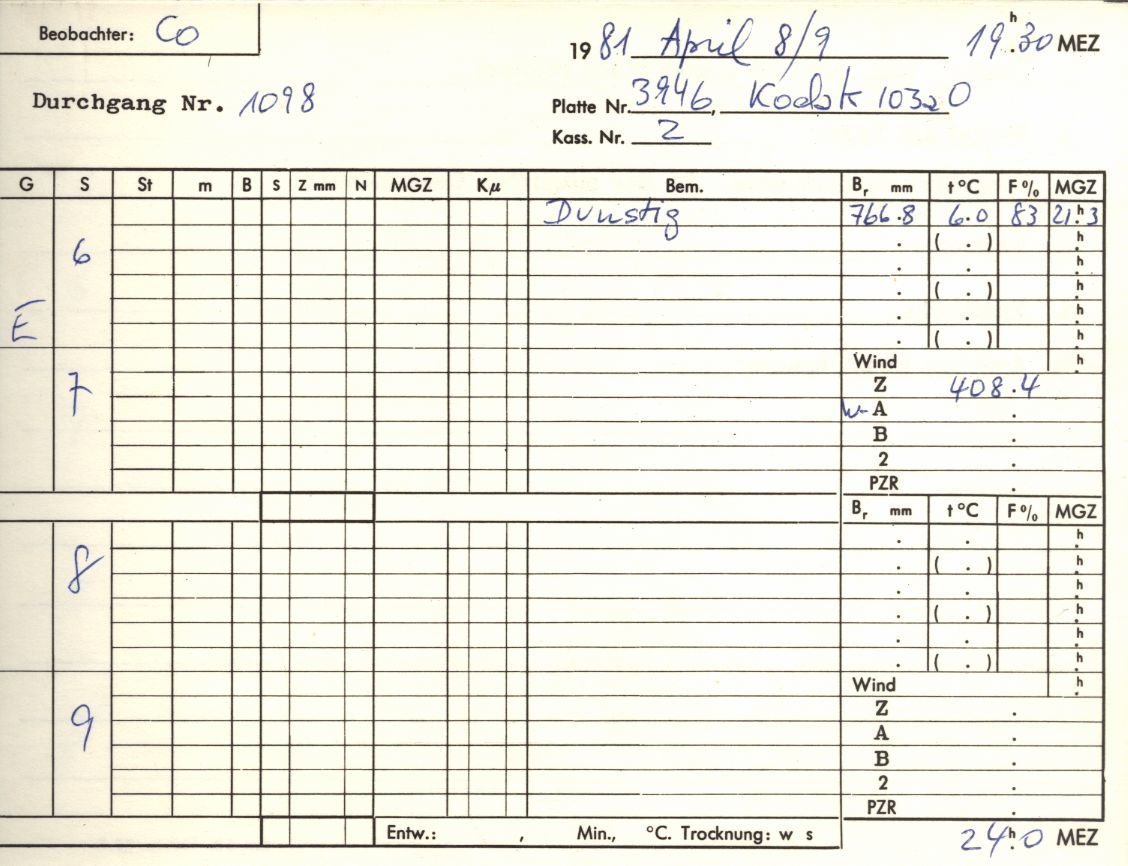 Beobachter: Co
1981 April 8/9 19h.30 MEZ
Durchgang Nr. 1098
Platte Nr. 3946, Kodak 103aO
Kass. Nr. 2
G S St m B S Z mm N MGZ Kμ Bem. Br mm t °C F % MGZ
Dunstig 766.8 6.0 83 21h.3
6 . ( . ) h.
. . h.
. ( . ) h.
E . . h.
. ( . ) h.
Wind h.
7 Z 408.4
w- A .
B .
2 .
PZR .
Br mm t °C F % MGZ
. . h.
8 . ( . ) h.
. . h.
. ( . ) h.
. . h.
. ( . ) h.
Wind h.
9 Z .
A .
B .
2 .
PZR .
Entw.: , Min., °C. Trocknung: w s
24h.0 MEZ